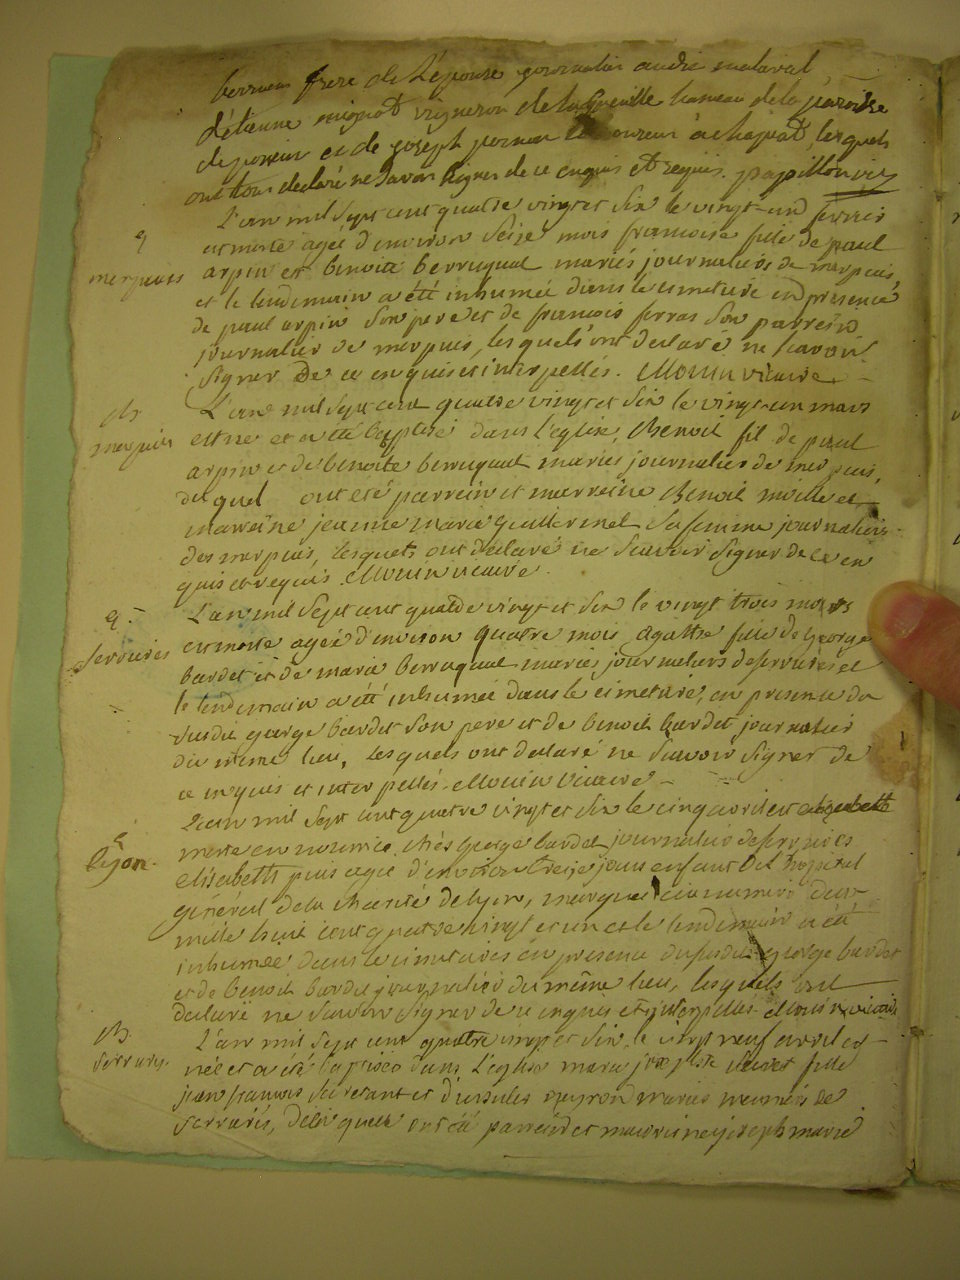 frere de l'épouse journalier audit malaval,
d'étienne mignot vigneron de la hameau de la paroisse
de et de joseph laboureur à chapuat, lesquels
ont tous declaré ne savoir signer de ce enquis et requis. papillon vic
L'an mil sept cent quatre vingt et six le vingt-un fevrier
q
est morte agée d'environ seize mois francoise fille de paul
merpuis
arpin et benoite berruquat mariés journaliers de merpuis,
et le lendemain a été inhumée dans le cimetiere en presence
de paul arpin son pere et de francois ferras son parrein
journalier de merpuis, lesquels ont declaré ne savoir
signer de ce enquis et interpellés. Monin vicaire
L'an mil sept cent quatre vingt et six le vingt-un mars
B
merpuis
est né et a été baptisé dans l'eglise, Benoit fil de paul
arpin et de benoite berruquat mariés journaliers de merpuis,
du quel ont eté parrein et marreine Benoit et
marreine jeanne marie guillermet sa femme journaliers
des merpuis, lesquels ont declaré ne savoir signer de ce en
quis et requis Monin vicaire.
q.
L'an mil sept cent quatre vingt et six le vingt trois mars
serrières
est morte agée d'environ quatre mois agathe fille de george
bardet et de marie berruquat mariés journaliers de serrières et
le lendemain a été inhumée dans le cimetiere, en presence du
susdit george bardet son pere et de benoit bardet journalier
du même lieu, lesquels ont declaré ne savoir signer de
ce enquis et interpellés Monin vicaire
L'an mil sept cent quatre vingt et six le cinq avril est
morte en nourrice chés george bardet journalier de serrières
lyon.
elisabeth puis agée d'environ treize jours enfant de l'hopital
général de la charité de lyon, marquée au numero deux
mille huit cent quatre vingt et un et le lendemain a été
inhumée dans le cimetiere en presence du susdit george bardet
et de benoit bardet journalier du même lieu, lesquels ont
declaré ne savoir signer de ce enquis et interpellés Monin vicaire
B.
L'an mil sept cent quatre vingt et six le vingt neuf avril est
serrieres
née et a été baptisée dans l'eglise marie fille
jean francois et d'ursule mariés meuniers de
serrières, de la quelle ont été parrein et marreine joseph marie